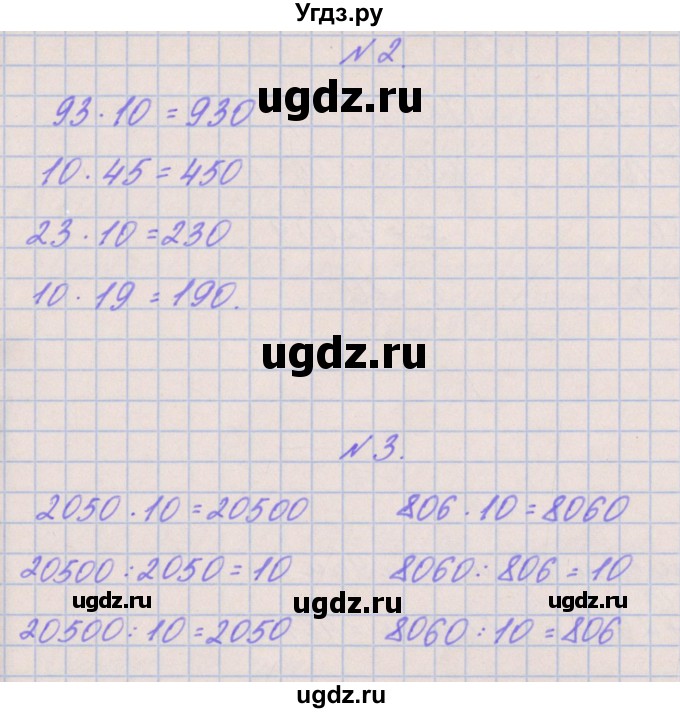 Угдз.ру
N 2.
ugdz.ru
93 · 10 = 930
10 · 45 = 450
23 · 10 = 230
10 · 19 = 190.
ugdz.ru
N 3.
2050 · 10 = 20500 806 · 10 = 8060
20500 : 2050 = 10 8060 : 806 = 10
ugdz.ru ugdz.ru ugdz.ru
20500 : 10 = 2050 8060 : 10 = 806
ugdz.ru